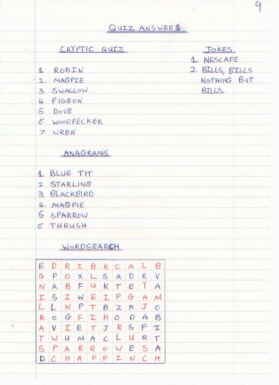 9
QUIZ ANSWERS.
CRYPTIC QUIZ
1 ROBIN
2. MAGPIE
3 SWALLOW
4 PIGEON
5 DOVE
6 WOODPECKER
7 WREN
JOKES.
1. NESCAPE
2. BILLS, BILLS
NOTHING BUT
BILLS.
ANAGRAMS
1 BLUE TIT
2 STARLING
3 BLACKBIRD
4. MAGPIE
5 SPARROW
6 THRUSH
WORDSEARCH
E D R I B K C A L B
G P O X L S A D R V
N A B F U R T O T A
I S I W E I P G A M
L L N P T B Z A J O
R O G F I H O D A B
A V I E T J R S F I
T W U M A C L U R T
S P A R R O W E S A
D C H A F F I N C H